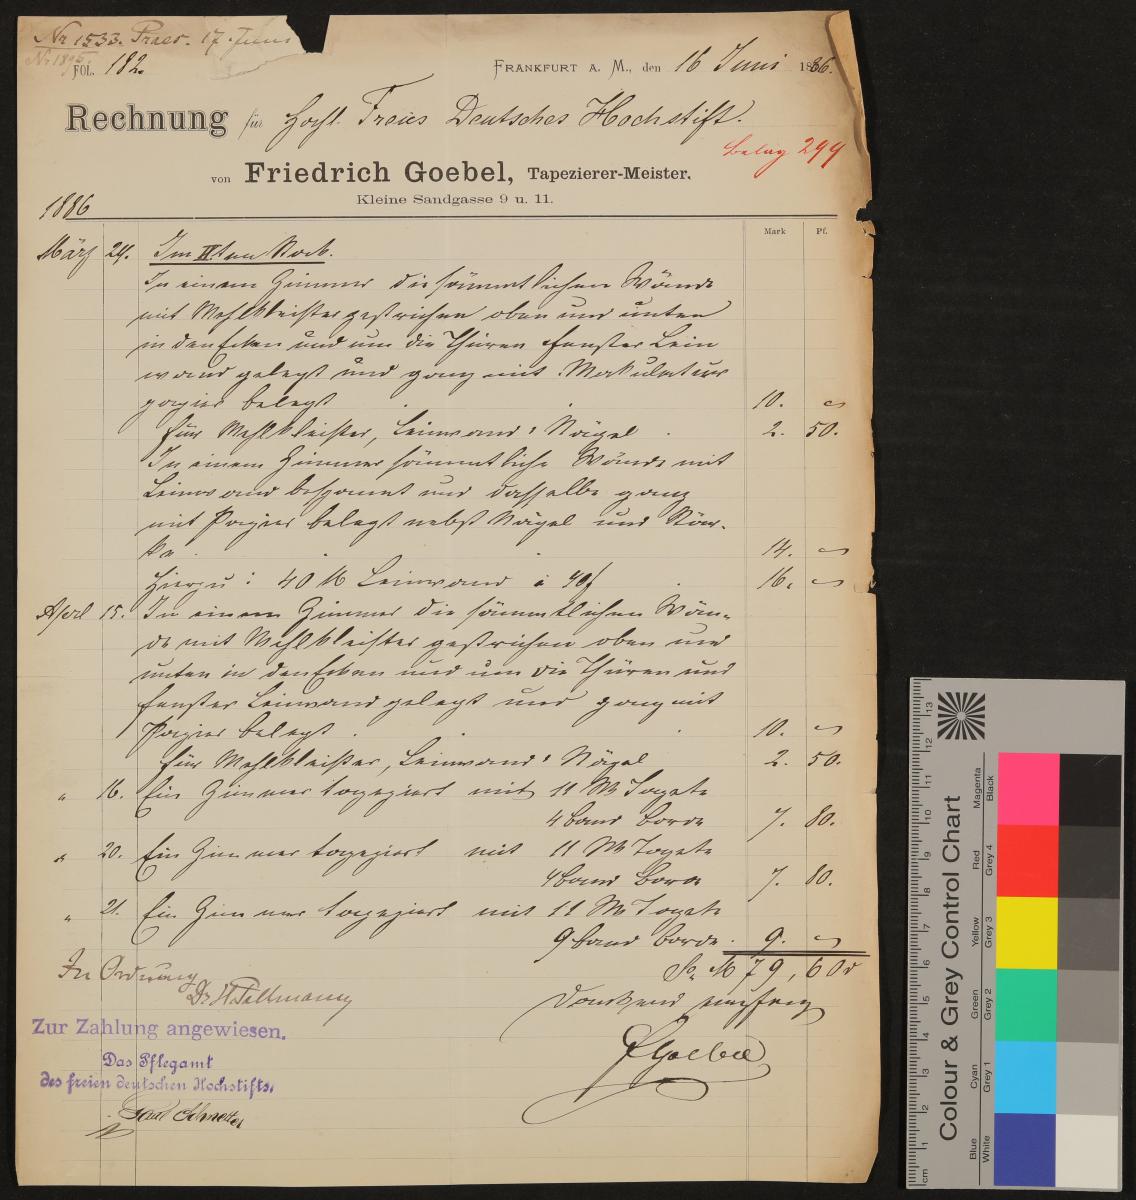 Nr 1533. Praes. 17. Juni
Nr 1895.
FOL. 182.
FRANKFURT A. M., den 16 Juni 1886.
Rechnung für Hochl. Freies Deutsches Hochstift.
Beleg 299
von Friedrich Goebel, Tapezierer-Meister.
Kleine Sandgasse 9 u. 11.
1886
Mark Pf.
März 24. Im IIten Stock.
In einem Zimmer die sämmtlichen Wände
mit Mehlkleister gestrichen oben und unten
in den Ecken und um die Thüren Fenster Lein
wand gelegt und ganz mit Makulatur
papier belegt 10. –
für Mehlkleister, Leinwand & Nägel 2. 50.
In einem Zimmer sämmtliche Wände mit
Leinwand bespannt und dasselbe ganz
mit Papier belegt nebst Nägel und Stär-
ke. 14. –
Hierzu: 40 M Leinwand à 40 ₰ 16. –
April 15. In einem Zimmer die sämmtlichen Wän-
de mit Mehlkleister gestrichen oben und
unten in den Ecken und um die Thüren und
Fenster Leinwand gelegt und ganz mit
Papier belegt. 10. –
für Mehlkleister, Leinwand & Nägel 2. 50.
" 16. Ein Zimmer tapeziert mit 11 St Tapete
4 band Borde 7. 80.
" 20. Ein Zimmer tapeziert mit 11 St Tapete
4 band Borde 7. 80.
" 21. Ein Zimmer tapeziert mit 11 St Tapete
9 band Borde. 9. –
Sa. M 79, 60 ₰
In Ordnung
Dankend empfang
Dr. H. Pallmann
F Goebel
Zur Zahlung angewiesen.
Das Pflegamt
des freien deutschen Hochstifts.
Colour & Grey Control Chart
Blue Cyan Green Yellow Red Magenta
White Grey 1 Grey 2 Grey 3 Grey 4 Black
cm 1 2 3 4 5 6 7 8 9 10 11 12 13